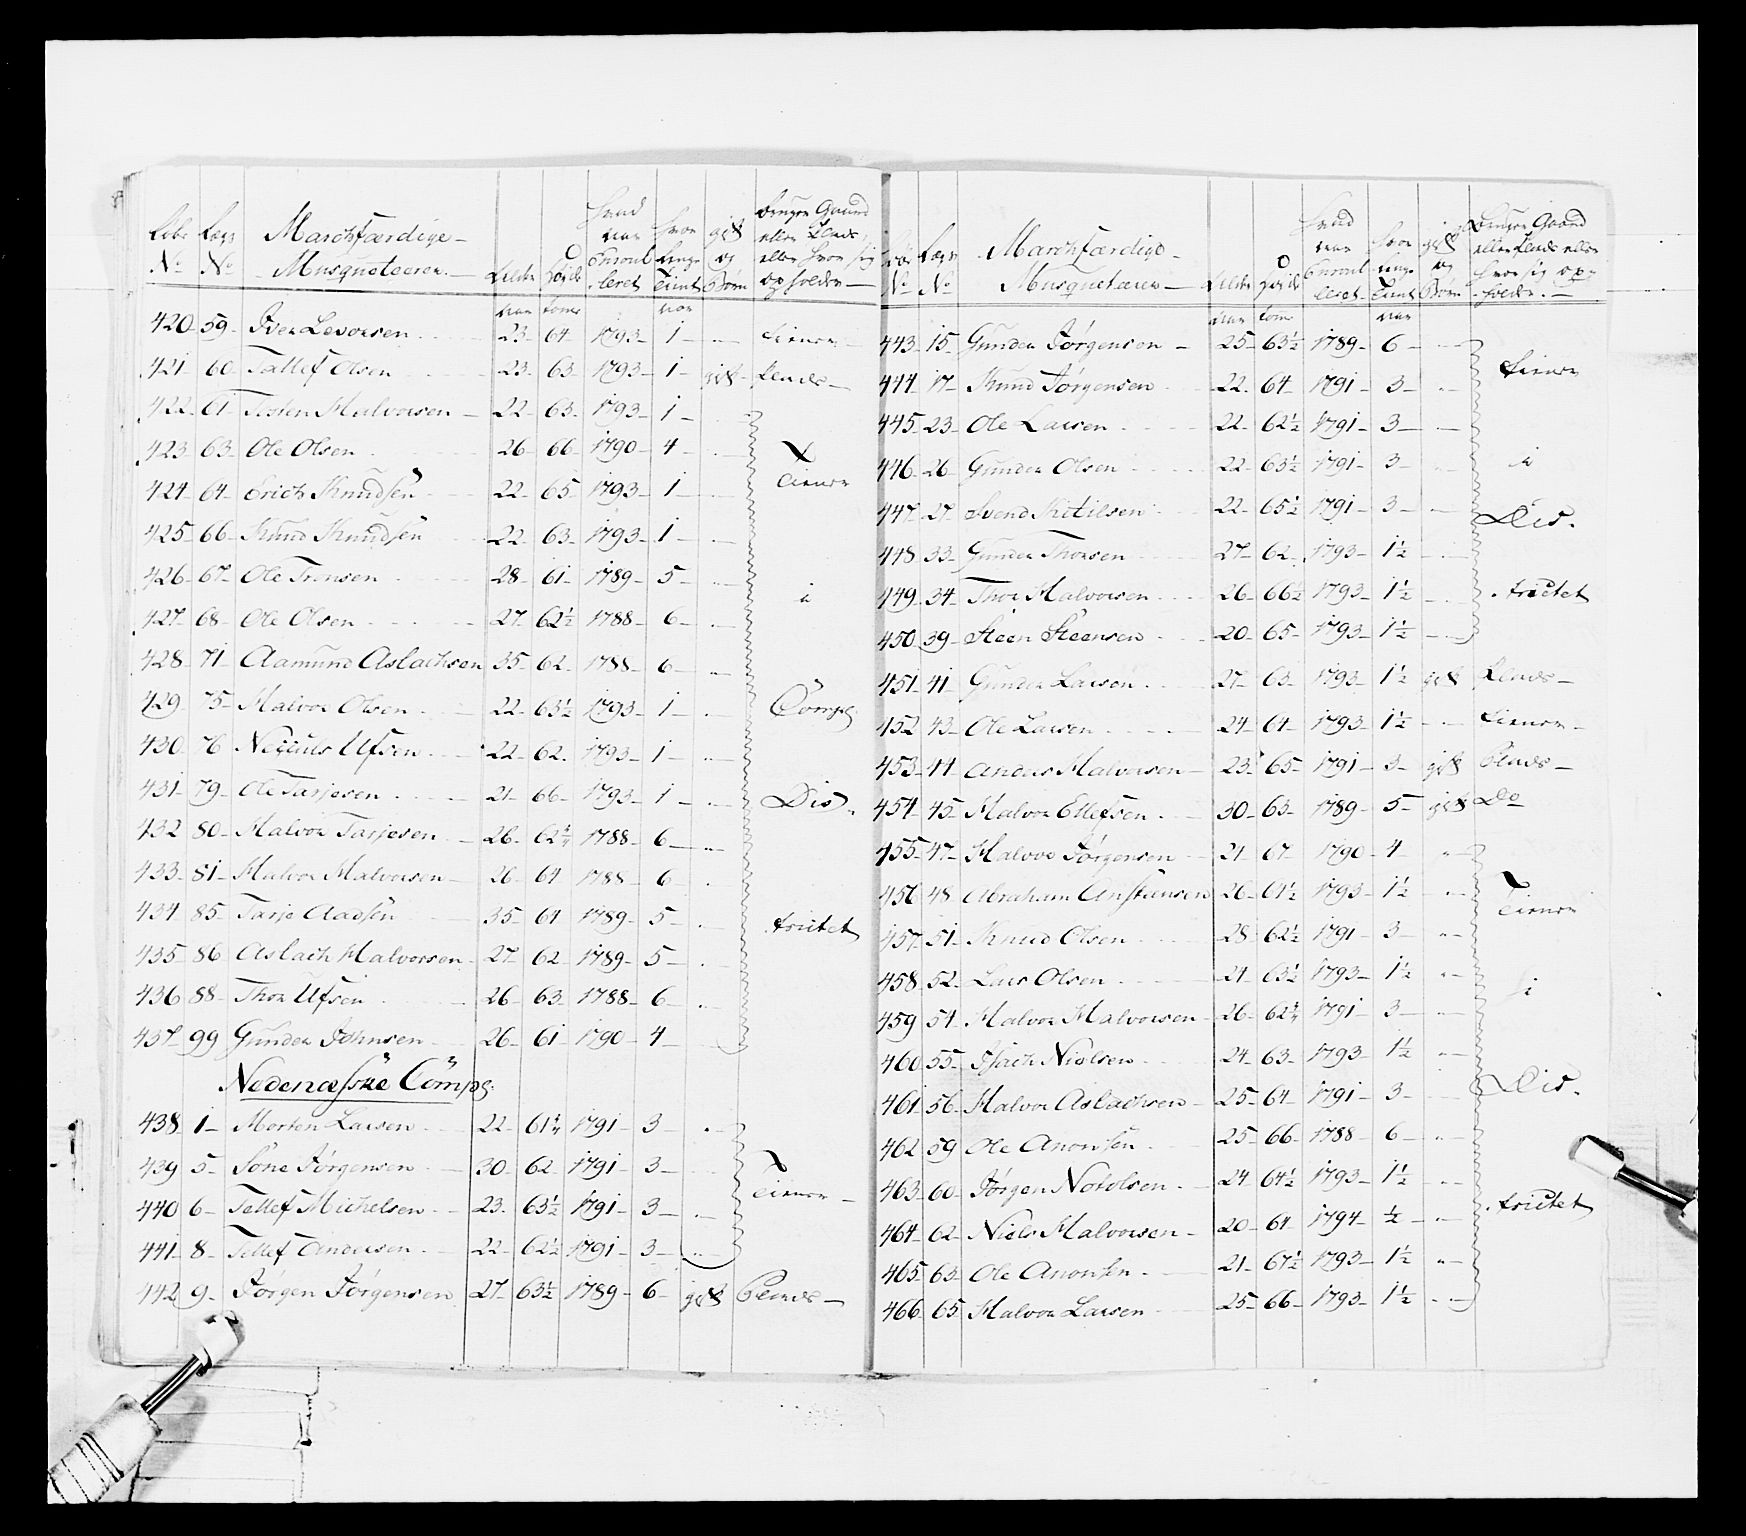 Løbe Lægs Marchfærdige
No No Musqueteerer Alder Høide Hvad Aar Enroulleret Hvor længe Tient gift og Børn bruger Gaard eller Plads, eller hvor sig opholder
Aar tomr Aar
420 59 Iver Levorsen 23 64 1793 1 tiener
421 60 Tallef Olsen 23 63 1793 1 gift Plads
422 61 Torsten Halvorsen 22 63 1793 1
423 63 Ole Olsen 26 66 1790 4
424 64 Erich Knudsen 22 65 1793 1 tiener
425 66 Knud Knudsen 22 63 1793 1
426 67 Ole Tronsen 28 61 1789 5 i
427 68 Ole Olsen 27 62½ 1788 6
428 71 Aamund Aslachsen 35 62 1788 6
429 75 Halvor Olsen 22 63½ 1793 1 Comp:
430 76 Ufsen 22 62 1793 1
431 79 Ole Tarjesen 21 66 1793 1 Dis
432 80 Halvor Tarjesen 26 62¼ 1788 6
433 81 Halvor Halvorsen 26 64 1788 6
434 85 Tarje Aadsen 35 64 1789 5 trictet
435 86 Aslach Halvorsen 27 62 1789 5
436 88 Thor Ufsen 26 63 1788 6
437 99 Gunder Johnsen 26 61 1790 4
Nedenæsske Comp:
438 1 Morten Larsen 22 61¼ 1791 3
439 5 Söne Jørgensen 30 62 1791 3 tiener
440 6 Tellef Michelsen 23 63½ 1791 3
441 8 Tellef Andersen 22 62½ 1791 3
442 9 Jørgen Jørgensen 27 63½ 1789 6 gift Plads
Løbe Lægs Marchfærdige
No No Musqueterer Alder Høide Hvad Aar Enroulleret Hvor længe Tient gift og Børn bruger Gaard eller Plads eller hvor sig opholder
Aar tomr Aar
443 15 Gunder Jørgensen 25 63½ 1789 6
444 17 Knud Jørgensen 22 64 1791 3 tiener
445 23 Ole Larsen 22 62½ 1791 3
446 26 Gunder Olsen 22 63½ 1791 3 i
447 27 Svend Kittilsen 22 65½ 1791 3 Dis
448 33 Gunder Thorsen 27 62 1793 1½
449 34 Thor Halvorsen 26 66½ 1793 1½ trictet
450 39 Steen Steensen 20 65 1793 1½
451 41 Gunder Larsen 27 63 1793 1½ gift Plads
452 43 Ole Larsen 24 64 1793 1½ tiener
453 44 Anders Halvorsen 23 65 1791 3 gift Plads
454 45 Halvor Ellefsen 30 63 1789 5 gift Do
455 47 Halvor Jørgensen 21 67 1790 4
456 48 Abraham Anstensen 26 61½ 1793 1½ Tiener
457 51 Knud Olsen 28 62½ 1791 3
458 52 Lars Olsen 21 63½ 1793 1½ i
459 54 Halvor Halvorsen 26 62¼ 1791 3
460 55 Isach Nielsen 24 63 1793 1½
461 56 Halvor Aslachsen 25 64 1791 3 Dis
462 59 Ole Anonsen 25 66 1788 6
463 60 Jørgen Notolsen 24 64½ 1793 1½
464 62 Niels Halvorsen 20 64 1794 ½ trictet
465 63 Ole Anonsen 21 67½ 1793 1½
466 65 Halvor Larsen 25 66 1793 1½